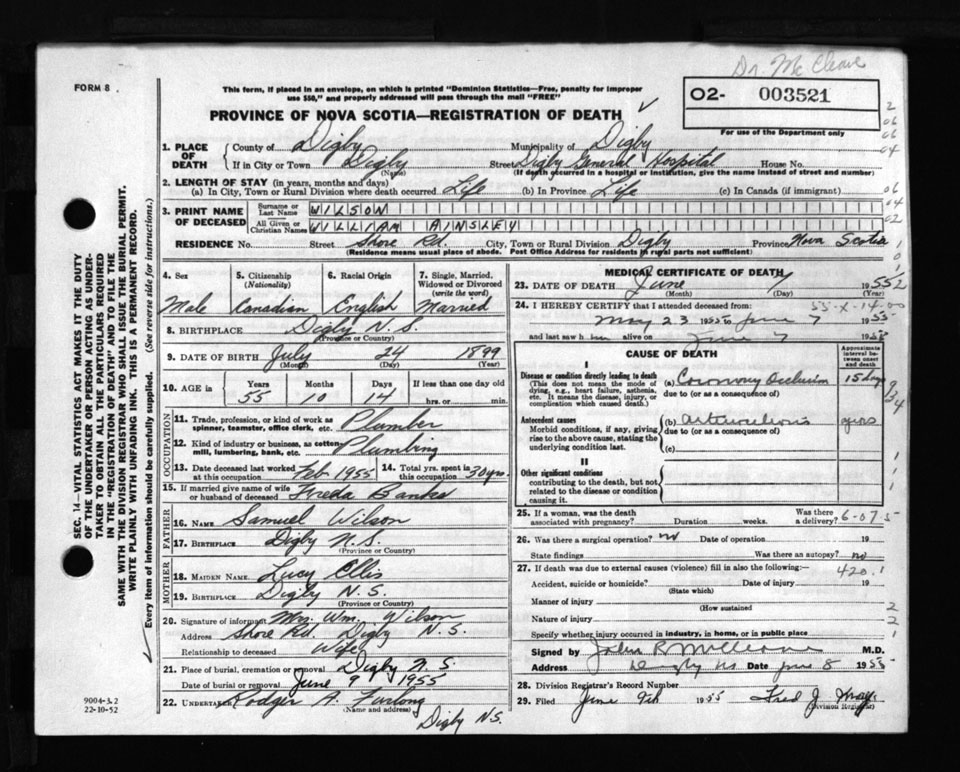 Dr. McCleave
FORM 8
This form, if placed in an envelope, on which is printed "Dominion Statistics—Free, penalty for improper
use $50," and properly addressed will pass through the mail "FREE"
O2- 003521
For use of the Department only
PROVINCE OF NOVA SCOTIA—REGISTRATION OF DEATH
1. PLACE OF DEATH
County of Digby Municipality of Digby
If in City or Town Digby (Name) Street Digby General Hospital House No.
(If death occurred in a hospital or institution, give the name instead of street and number)
2. LENGTH OF STAY (in years, months and days)
(a) In City, Town or Rural Division where death occurred Life (b) In Province Life (c) In Canada (if immigrant)
3. PRINT NAME OF DECEASED
Surname or Last Name WILSON
All Given or Christian Names WILLIAM AINSLEY
RESIDENCE No. Street Shore Rd. City, Town or Rural Division Digby Province Nova Scotia
(Residence means usual place of abode. Post Office Address for residents in rural parts not sufficient)
4. Sex Male
5. Citizenship (Nationality) Canadian
6. Racial Origin English
7. Single, Married, Widowed or Divorced (write the word) Married
8. BIRTHPLACE Digby N.S.
(Province or Country)
9. DATE OF BIRTH July 24 1899
(Month) (Day) (Year)
10. AGE in Years 55 Months 10 Days 14 If less than one day old
hrs. or min.
OCCUPATION
11. Trade, profession, or kind of work as spinner, teamster, office clerk, etc. Plumber
12. Kind of industry or business, as cotton-mill, lumbering, bank, etc. Plumbing
13. Date deceased last worked at this occupation Feb 1955 14. Total yrs. spent in this occupation 30 yrs.
15. If married give name of wife or husband of deceased Freda Banks
FATHER
16. NAME Samuel Wilson
17. BIRTHPLACE Digby N.S.
(Province or Country)
MOTHER
18. MAIDEN NAME Lucy Ellis
19. BIRTHPLACE Digby N.S.
(Province or Country)
20. Signature of informant Mrs. Wm. Wilson
Address Shore Rd. Digby N.S.
Relationship to deceased Wife
21. Place of burial, cremation or removal Digby N.S.
Date of burial or removal June 9 1955
22. UNDERTAKER Rodger A. Furlong
(Name and address)
Digby N.S.
MEDICAL CERTIFICATE OF DEATH
23. DATE OF DEATH June 7 1955
(Month) (Day) (Year)
55-X-14-00
24. I HEREBY CERTIFY that I attended deceased from:
May 23 1955 to June 7 1955
and last saw him alive on June 7 1955
CAUSE OF DEATH
Approximate interval between onset and death
I
Disease or condition directly leading to death
(This does not mean the mode of dying, e.g., heart failure, asthenia, etc. It means the disease, injury, or complication which caused death.)
(a) Coronary Occlusion 15 days
due to (or as a consequence of)
Antecedent causes
Morbid conditions, if any, giving rise to the above cause, stating the underlying condition last.
(b) yrs
due to (or as a consequence of)
(c)
II
Other significant conditions
contributing to the death, but not related to the disease or condition causing it.
25. If a woman, was the death associated with pregnancy? Duration weeks. Was there a delivery? 6-07.5
26. Was there a surgical operation? no Date of operation 19
State findings Was there an autopsy? no
27. If death was due to external causes (violence) fill in also the following:— 420.1
Accident, suicide or homicide? Date of injury 19
(State which)
Manner of injury
(How sustained
Nature of injury
Specify whether injury occurred in industry, in home, or in public place
Signed by John R McCleave M.D.
Address Digby NS Date June 8 1955
28. Division Registrar's Record Number
29. Filed June 9th 1955 Fred J.
(Division Registrar)
SEC. 14—VITAL STATISTICS ACT MAKES IT THE DUTY
OF THE UNDERTAKER OR PERSON ACTING AS UNDER-
TAKER TO OBTAIN ALL THE PARTICULARS REQUIRED
IN THE "REGISTRATION OF DEATH" AND TO FILE THE
SAME WITH THE DIVISION REGISTRAR WHO SHALL ISSUE THE BURIAL PERMIT.
WRITE PLAINLY WITH UNFADING INK. THIS IS A PERMANENT RECORD.
Every item of information should be carefully supplied. (See reverse side for instructions.)
9004-3.2
22-10-52